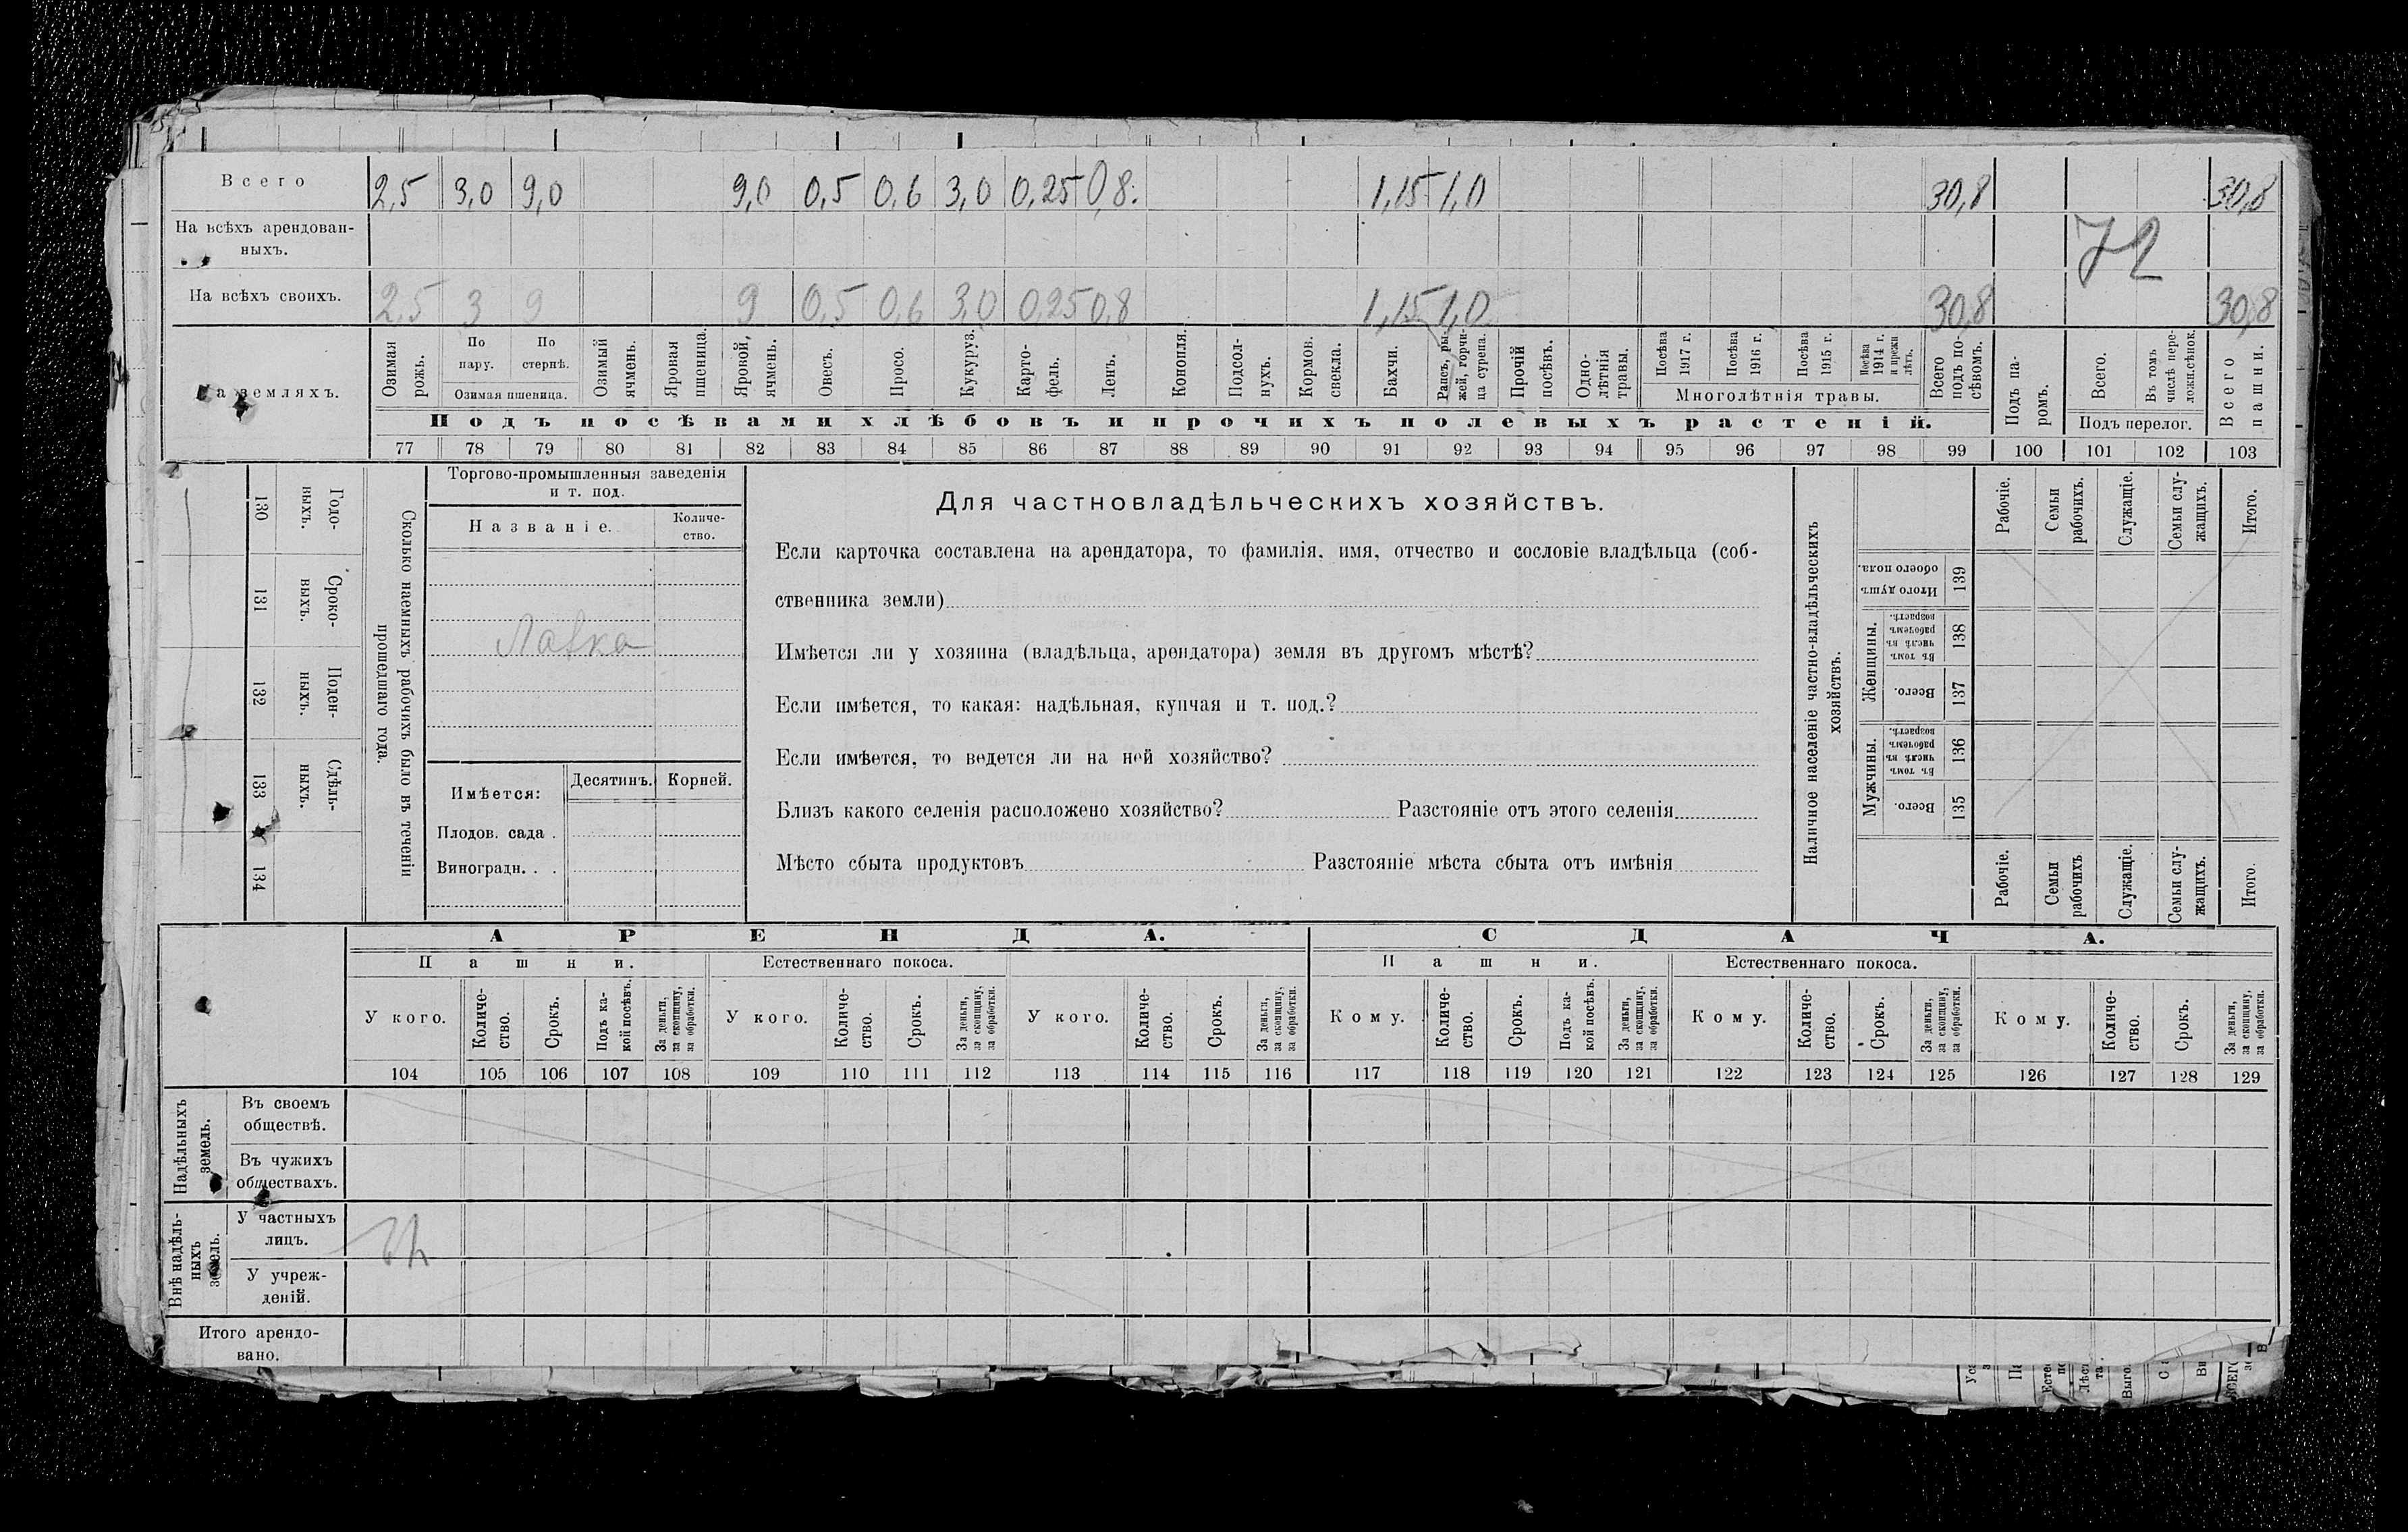 Всего 2,5 3,0 9,0 9,0 0,5 0,6 3,0 0,25 0,8. 1,15 1,0 30,8 30,8
На всѣхъ арендован-
ныхъ.
72
На всѣхъ своихъ. 2,5 3 9 9 0,5 0,6 3,0 0,25 0,8 1,15 1,0 30,8 30,8
На земляхъ.
Озимая рожь.
По пару.
По стернѣ.
Озимая пшеница.
Озимый ячмень.
Яровая пшеница.
Яровой, ячмень.
Овесъ.
Просо.
Кукуруз.
Карто-
фель.
Ленъ.
Конопля.
Подсол-
нухъ.
Кормов.
свекла.
Бахчи.
Рапсъ, ры-
жей, горчи-
ца сурепа.
Прочій
посѣвъ.
Одно-
лѣтнія
травы.
Посѣва 1917 г.
Посѣва 1916 г.
Посѣва 1915 г.
Посѣва 1914 г. и прежн лѣтъ.
Многолѣтнія травы.
Всего
подъ по-
сѣвомъ.
Подъ па-
ромъ.
Всего.
Въ томъ
числѣ пере-
ложн.сѣнок.
Подъ перелог.
Всего
пашни.
Подъ посѣвами хлѣбовъ и прочихъ полевыхъ растеній.
77 78 79 80 81 82 83 84 85 86 87 88 89 90 91 92 93 94 95 96 97 98 99 100 101 102 103
130 Годо-
выхъ.
131 Сроко-
выхъ.
132 Поден-
ныхъ.
133 Сдѣль-
ныхъ.
134
Сколько наемныхъ рабочихъ было въ теченіи
прошедшаго года.
Торгово-промышленныя заведенія
и т. под.
Названіе.
Количе-
ство.
Лавка
Имѣется: Десятинъ. Корней.
Плодов. сада .
Виноградн. . .
Для частновладѣльческихъ хозяйствъ.
Если карточка составлена на арендатора, то фамилія, имя, отчество и сословіе владѣльца (соб-
ственника земли)
Имѣется ли у хозяина (владѣльца, арендатора) земля въ другомъ мѣстѣ?
Если имѣется, то какая: надѣльная, купчая и т. под.?
Если имѣется, то ведется ли на ней хозяйство?
Близъ какого селенія расположено хозяйство? Разстояніе отъ этого селенія
Мѣсто сбыта продуктовъ Разстояніе мѣста сбыта отъ имѣнія
Наличное населеніе частно-владѣльческихъ
хозяйствъ.
Рабочіе.
Семьи
рабочихъ.
Служащіе.
Семьи слу-
жащихъ.
Итого.
Итого душъ
обоего пола. 139
Женщины.
Въ томъ
числѣ въ
рабочемъ
возрастѣ. 138
Всего. 137
Мужчины.
Въ томъ
числѣ въ
рабочемъ
возрастѣ. 136
Всего. 135
Рабочіе.
Семьи
рабочихъ
Служащіе.
Семьи слу-
жащихъ.
Итого.
АРЕНДА. СДАЧА.
Пашни. Естественнаго покоса. Пашни. Естественнаго покоса.
У кого.
Количе-
ство.
Срокъ.
Подъ ка-
кой посѣвъ.
За деньги,
за скопщину,
за обработки.
У кого.
Количе-
ство.
Срокъ.
За деньги,
за скопщину,
за обработки.
У кого.
Количе-
ство.
Срокъ.
За деньги,
за скопщину,
за обработки.
Кому.
Количе-
ство.
Срокъ.
Подъ ка-
кой посѣвъ.
За деньги,
за скопщину,
за обработки.
Кому.
Количе-
ство.
Срокъ.
За деньги,
за скопщину,
за обработки.
Кому.
Количе-
ство.
Срокъ.
За деньги,
за скопщину,
за обработки.
104 105 106 107 108 109 110 111 112 113 114 115 116 117 118 119 120 121 122 123 124 125 126 127 128 129
Надѣльныхъ
земель.
Въ своемъ
обществѣ.
Въ чужихъ
обществахъ.
Внѣ надѣль-
ныхъ
земель.
У частныхъ
лицъ.
У учреж-
деній.
Итого арендо-
вано.